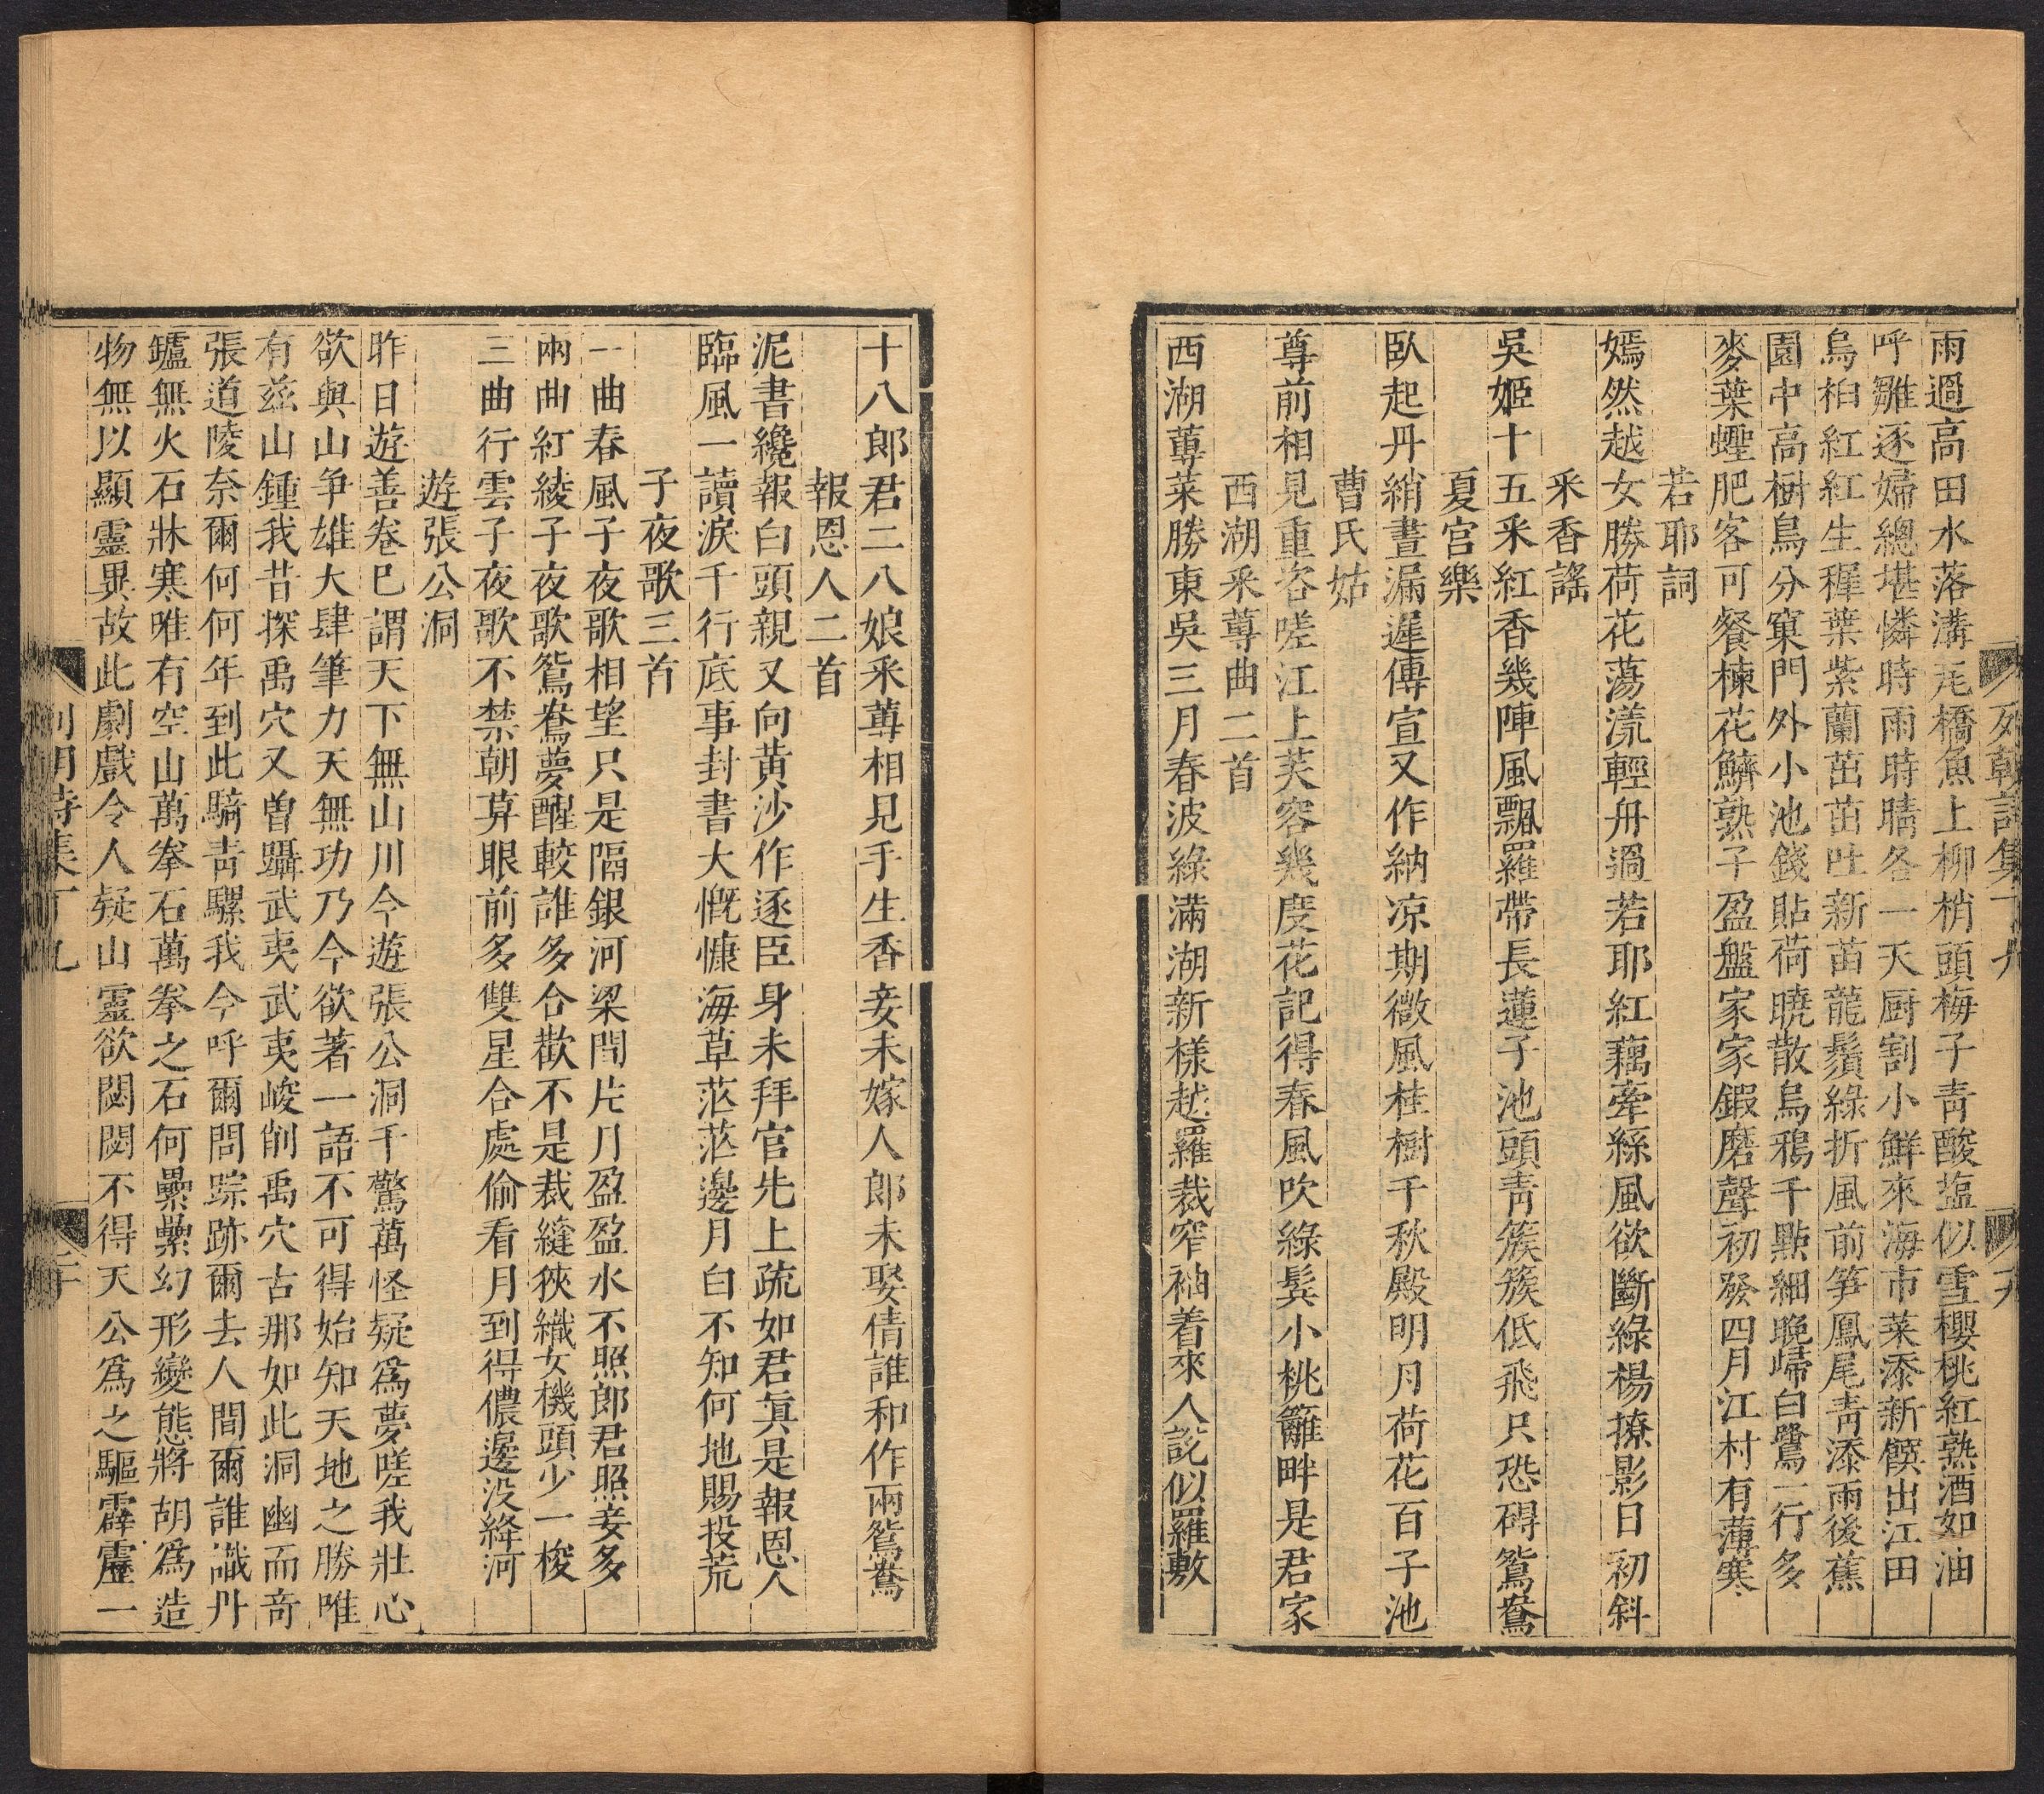 列朝詩集丁九
十九
雨過高田水落溝毛橋魚上柳梢頭梅子青酸塩似雪櫻桃紅熟酒如油
呼雛逐婦總堪憐時雨時晴各一天厨割小鮮來海市菜添新饌出江田
烏桕紅紅生穉葉紫蘭茁茁吐新苗龍鬚綠折風前笋鳳尾青添雨後蕉
園中高樹鳥分窠門外小池錢貼荷曉散烏鴉千點細晚歸白鷺一行多
麥葉蟶肥客可餐楝花鱭熟子盈盤家家鍜磨聲初發四月江村有薄寒
若耶詞
嫣然越女勝荷花蕩漾輕舟過若耶紅藕牽絲風欲斷綠楊撩影日初斜
采香謠
吳姬十五采紅香幾陣風飄羅帶長蓮子池頭青簇簇低飛只恐碍鴛鴦
夏宮樂
臥起丹綃晝漏遲傳宣又作納凉期微風桂樹千秋殿明月荷花百子池
曹氏姑
尊前相見重咨嗟江上芙容幾度花記得春風吹綠鬂小桃籬畔是君家
西湖采蓴曲二首
西湖蓴菜勝東吳三月春波綠滿湖新樣越羅裁窄袖着來人說似羅敷
十八郎君二八娘采蓴相見手生香妾未嫁人郎未娶倩誰和作兩鴛鴦
報恩人二首
泥書纔報白頭親又向黃沙作逐臣身未拜官先上疏如君眞是報恩人
臨風一讀淚千行底事封書大慨慷海草茫茫邊月白不知何地賜投荒
子夜歌三首
一曲春風子夜歌相望只是隔銀河梁間片月盈盈水不照郎君照妾多
兩曲紅綾子夜歌鴛鴦夢醒較誰多合歡不是裁縫狹織女機頭少一梭
三曲行雲子夜歌不禁朝莫眼前多雙星合處偷看月到得儂邊没絳河
遊張公洞
昨日遊善卷巳謂天下無山川今遊張公洞千驚萬怪疑爲夢嗟我壯心
欲與山争雄大肆筆力天無功乃今欲著一語不可得始知天地之勝唯
有兹山鍾我昔探禹穴又曾躡武夷武夷峻削禹穴古那如此洞幽而奇
張道陵奈爾何何年到此騎青騾我今呼爾問踪跡爾去人間爾誰識丹
鑪無火石牀寒唯有空山萬拳石萬拳之石何纍纍幻形變態將胡爲造
物無以顯靈異故此劇戲令人疑山靈欲閟閟不得天公爲之驅霹靂一
列朝詩集丁九
二十